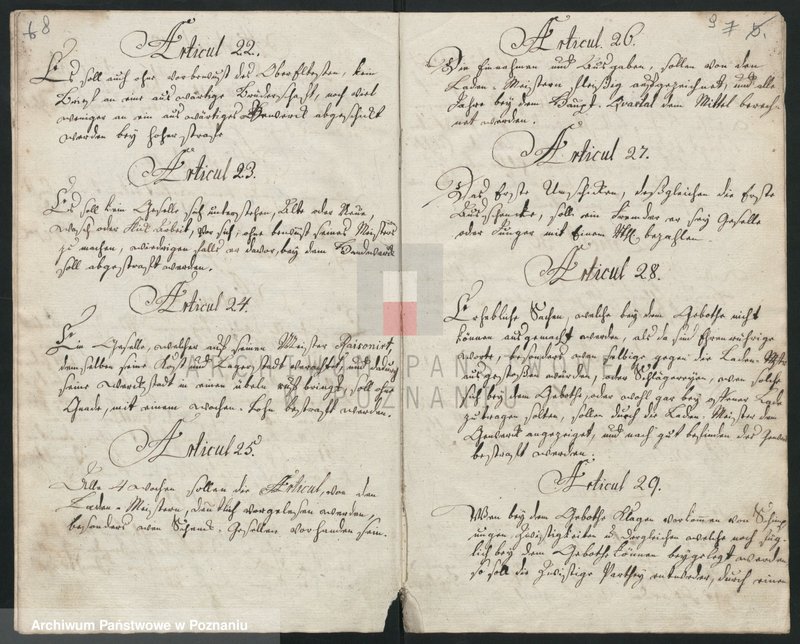 68
Articul 22.
Es soll auch ohne vorbewust des Oberältesten, kein
Brief an eine auswärtige Brüderschaft, noch viel
weniger an ein auswärtiges Gewerck abgeschickt
werden bey hoher straffe.
Articul 23.
Es soll kein Geselle sich unterstehen, Alte oder Neue,
vor sich, ohne bewust seines Meisters
zu machen, wiedrigenfalls er davor, bey dem Handwerck
soll abgestraft werden.
Articul 24.
Ein Geselle, welcher auf seinen Meister Raisonirt,
demselben seine Kost und Lagerstadt verachtet und dadurch
seine werckstadt in einen übeln ruf bringt, soll ohne
Gnade, mit einem wochen-Lohn bestraft werden.
Articul 25.
Alle 4 wochen sollen die Articul, von den
Laden-Meistern, deutlich vorgelesen werden,
besonders wen Schenk-Gesellen vorhanden sein.
9 7 5.
Articul. 26.
Die Einnahmen und Ausgaben, sollen von den
Laden-Meistern fleißig aufgezeichnet, und alle
Jahre bey dem Haupt-Quartal dem Mittel berech-
net werden.
Articul 27.
Das Erste Umschicken, desgleichen die Erste
Ausschencke, soll ein Fremder er sey Geselle
oder Junger mit Einen bezahlen.
Articul 28.
Erhebliche Sachen, welche bey dem Gebothe nicht
können ausgemacht werden, als da sind Ehrenrührige
worte, besonders wen selbige gegen die Laden-Mstr
ausgestoßen würden, oder Schlägereyen, wen solche
sich bey dem Gebothe, oder wohl gar bey offener Lade
zutragen solten, sollen durch die Laden-Meister dem
Gewerck angezeiget, und nach gut befinden des Gewercks
bestraft werden.
Articul 29.
Wen bey dem Gebothe Klagen vorkommen von Schimp-
fungen Zwistigkeiten u. dergleichen welche noch füg-
lich bey dem Gebothe können beygelegt werden,
so soll die Zwistige Parthey entweder, durch einen
ARCHIWUM PAŃSTWOWE
W POZNANIU
Archiwum Państwowe w Poznaniu